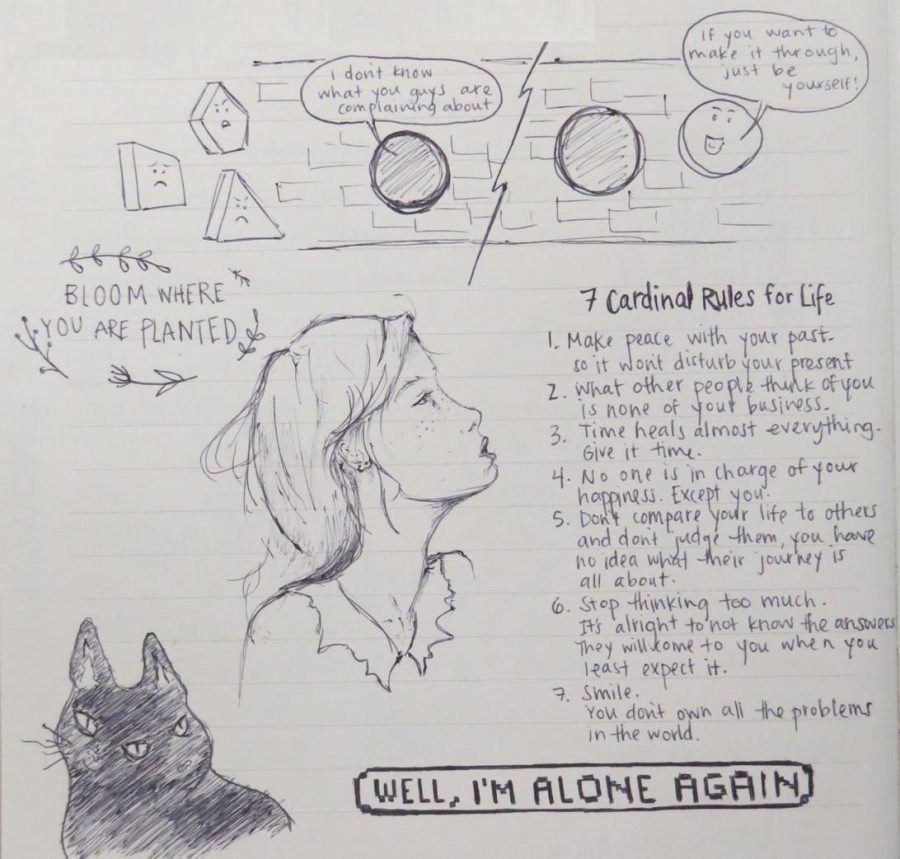 i don't know
what you guys are
complaining about
if you want to
make it through,
just be
yourself!
BLOOM WHERE
YOU ARE PLANTED
7 Cardinal Rules for Life
1. Make peace with your past.
so it won't disturb your present
2. What other people think of you
is none of your business.
3. Time heals almost everything.
Give it time.
4. No one is in charge of your
happiness. Except you.
5. Don't compare your life to others
and don't judge them, you have
no idea what their journey is
all about.
6. Stop thinking too much.
It's alright to not know the answers
They will come to you when you
least expect it.
7. Smile.
You don't own all the problems
in the world.
WELL, I'M ALONE AGAIN